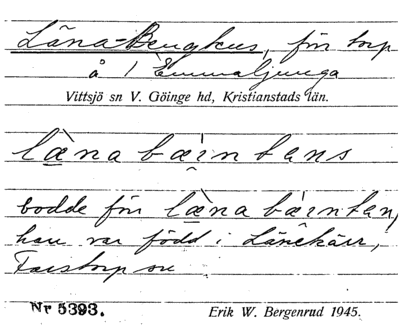 Läna-Bengtens, förr torp
å 1 Emmaljunga
Vittsjö sn V. Göinge hd, Kristianstads län.
læna bæin tens
bodde förr læna bæinten,
han var född i Länekärr,
Farstorp sn
Nr 5393. Erik W. Bergenrud 1945.